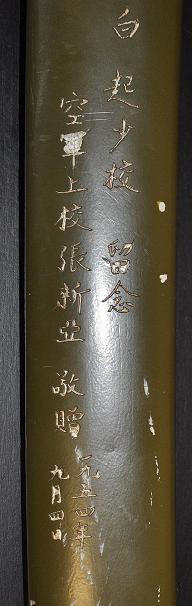 白起少校 留念
空軍上校張新亞 敬贈
一九五四年
九月四日